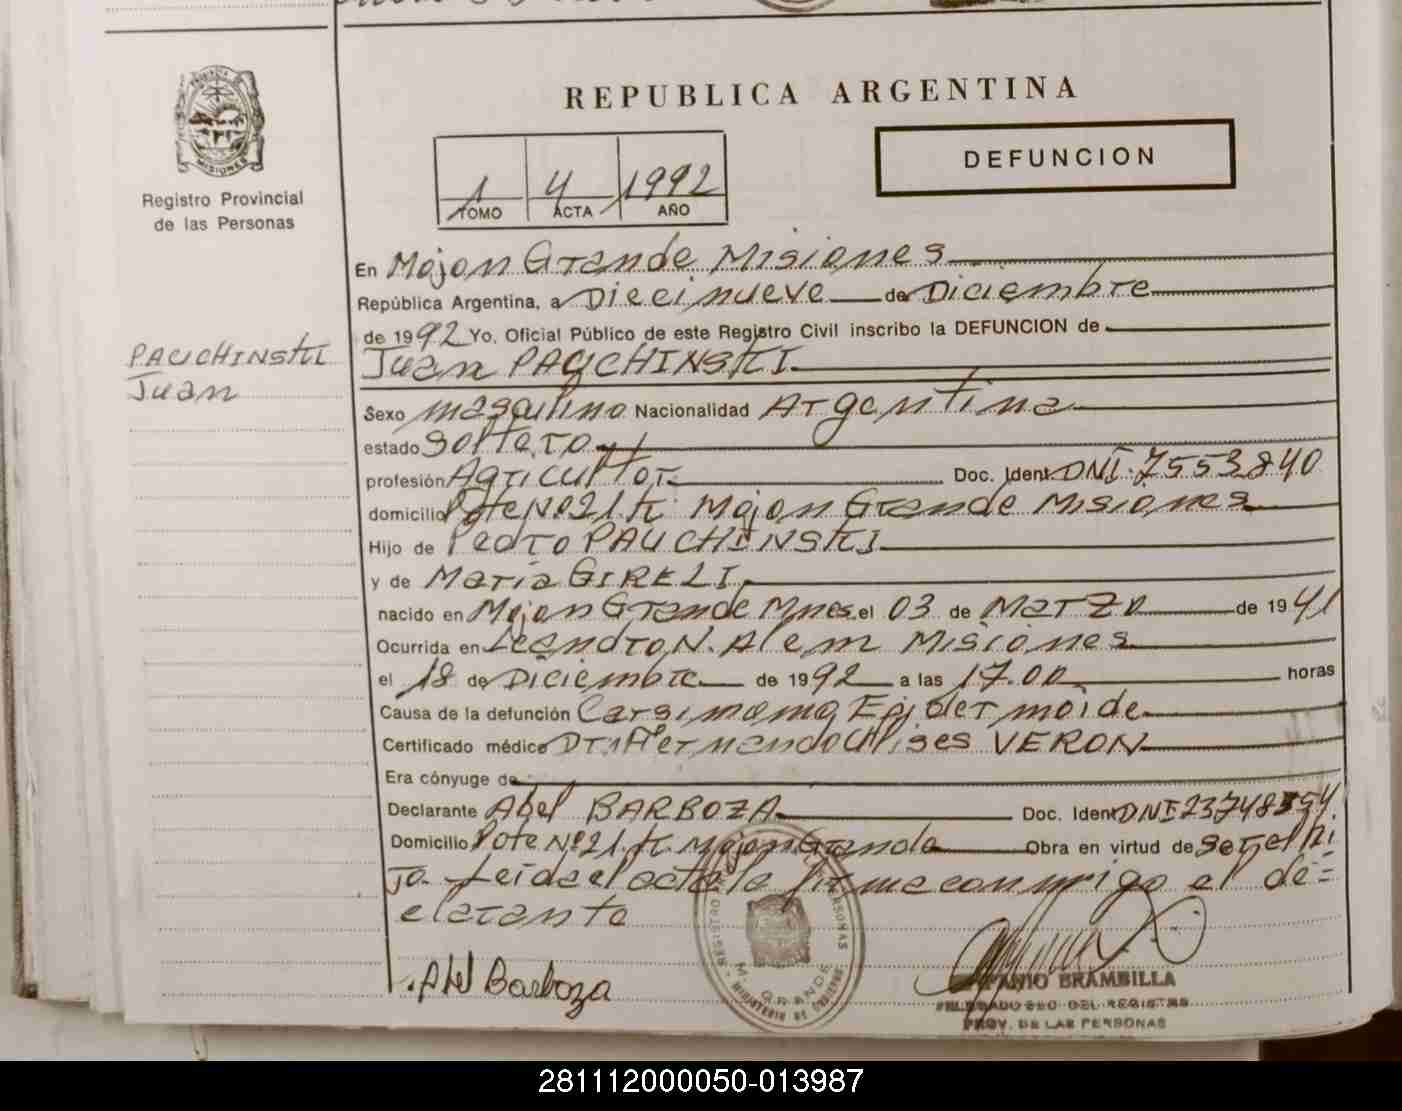 REPUBLICA ARGENTINA
DEFUNCION
1 4 1992
TOMO ACTA AÑO
PROVINCIA DE
MISIONES
Registro Provincial
de las Personas
En Mojon Grande Misiones
República Argentina, a Diecinueve de Diciembre
de 1992 Yo, Oficial Público de este Registro Civil inscribo la DEFUNCION de
PAUCHINSKI
Juan
Juan PAUCHINSKI
Sexo masculino Nacionalidad Argentina
estado Soltero
profesión Agricultor Doc. Ident DNI. 7553840
domicilio Lote Nº 21. K. Mojon Grande Misiones
Hijo de Pedro PAUCHINSKI
y de Maria GIRELI
nacido en Mojon Grande Mnes. el 03 de Marzo de 1941
Ocurrida en Leandro N. Alem Misiones
el 18 de Diciembre de 1992 a las 17.00 horas
Causa de la defunción Carsinoma Epidermoide
Certificado médico Dr. Hernando Ulises VERON
Era cónyuge de
Declarante Abel BARBOZA Doc. Ident DNI 23748354.
Domicilio Lote Nº 21. K. Mojon Grande Obra en virtud de ser el hi
jo. Leida el acta la firma conmigo el de=
clarante
Abel Barboza
BRAMBILLA
DEL REGISTRO
PROV. DE LAS PERSONAS
281112000050-013987